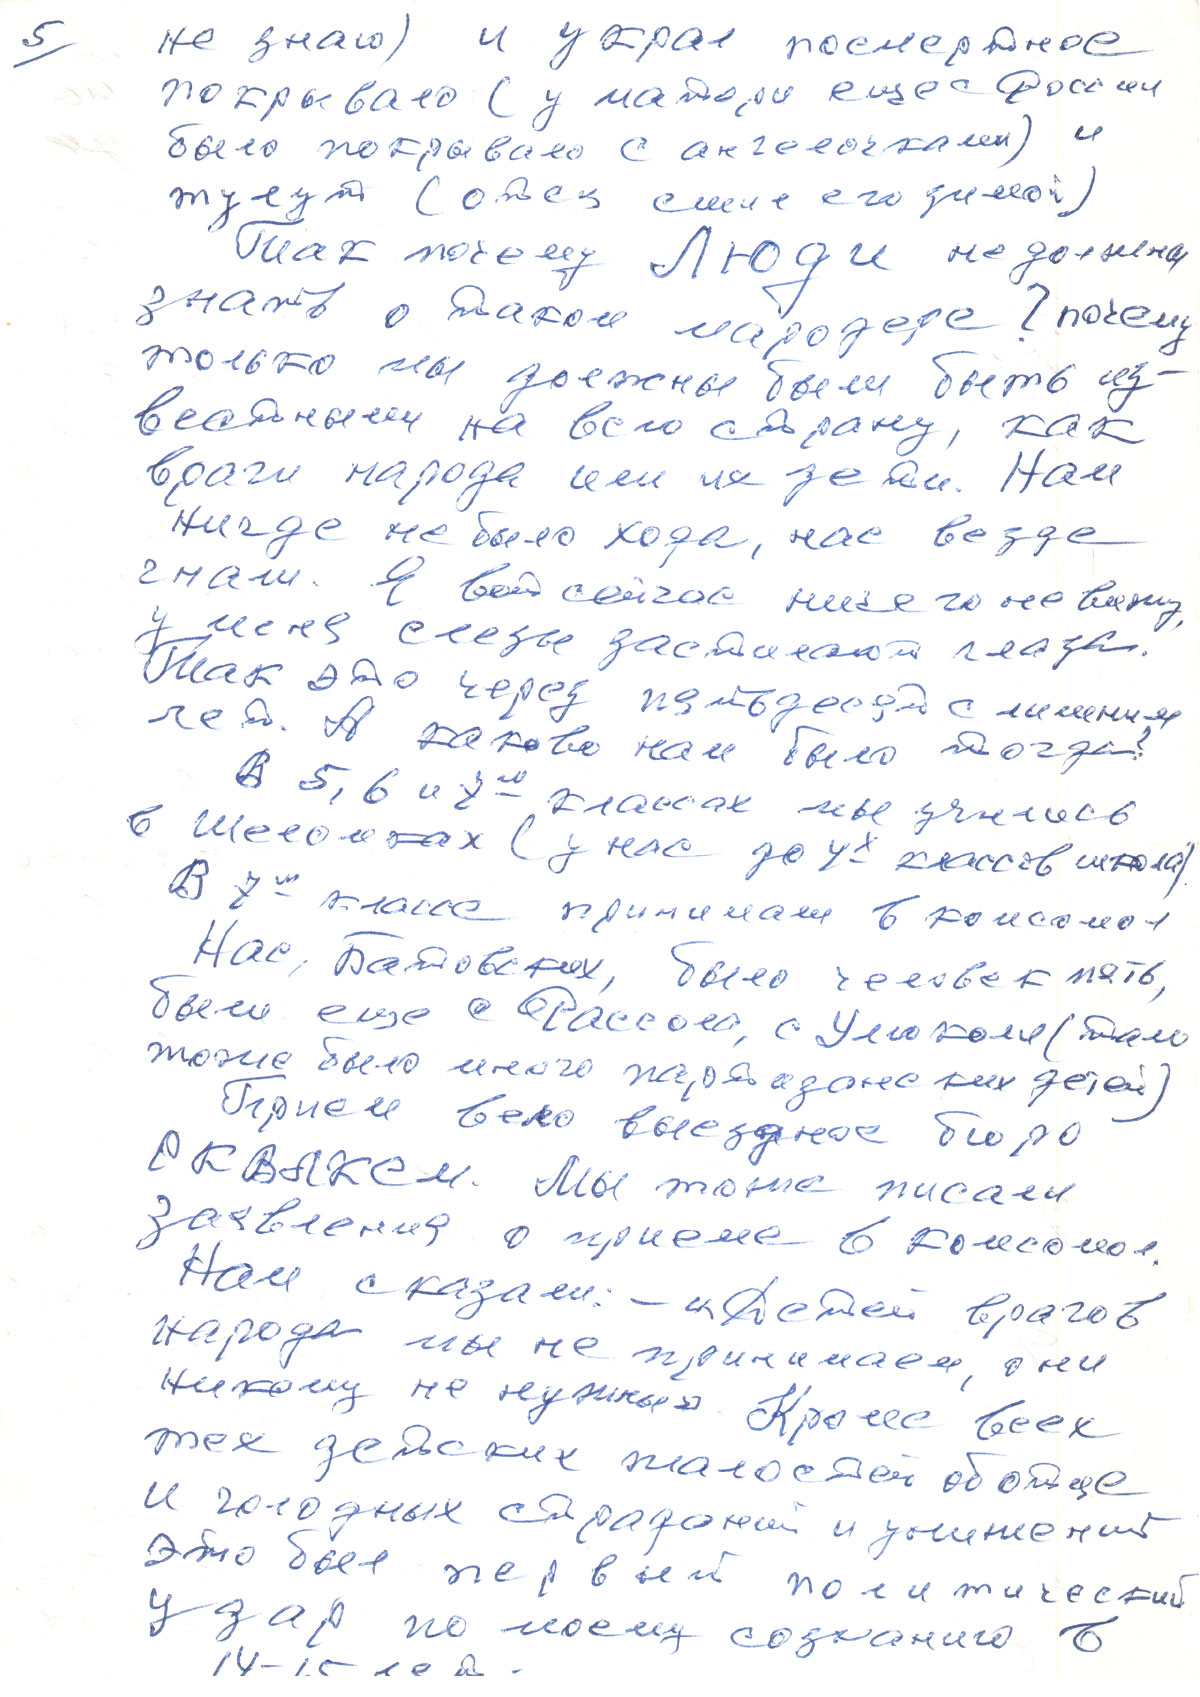 5/
не знаю) и украл посмертное
покрывало (у матери еще с России
было покрывало с ангелочками) и
тулуп (отец сшил его зимой)
Так почему Люди не должны
знать о таком мародере? почему
только мы должны были быть из-
вестными на всю страну, как
враги народа или их дети. Нам
нигде не было хода, нас везде
гнали. Я вот сейчас ничего не вижу,
у меня слезы застилают глаза.
Так это через пятьдесят с лишним
лет. А каково нам было тогда?
В 5, 6 и 7ᵐ классах мы учились
в Шеломках (у нас до 4ˣ классов школа).
В 7ᵐ классе принимали в комсомол
Нас, Батовских, было человек пять,
были еще с Рассол, с Улюколя (там
тоже было много партизанских детей)
Прием вело выездное бюро
РК ВЛКСМ. Мы тоже писали
заявления о приеме в комсомол.
Нам сказали: – „Детей врагов
народа мы не принимаем, они
никому не нужны". Кроме всех
тех детских жалостей об отце
и голодных страданий и унижений
это был первый политический
удар по моему сознанию в
14-15 лет.